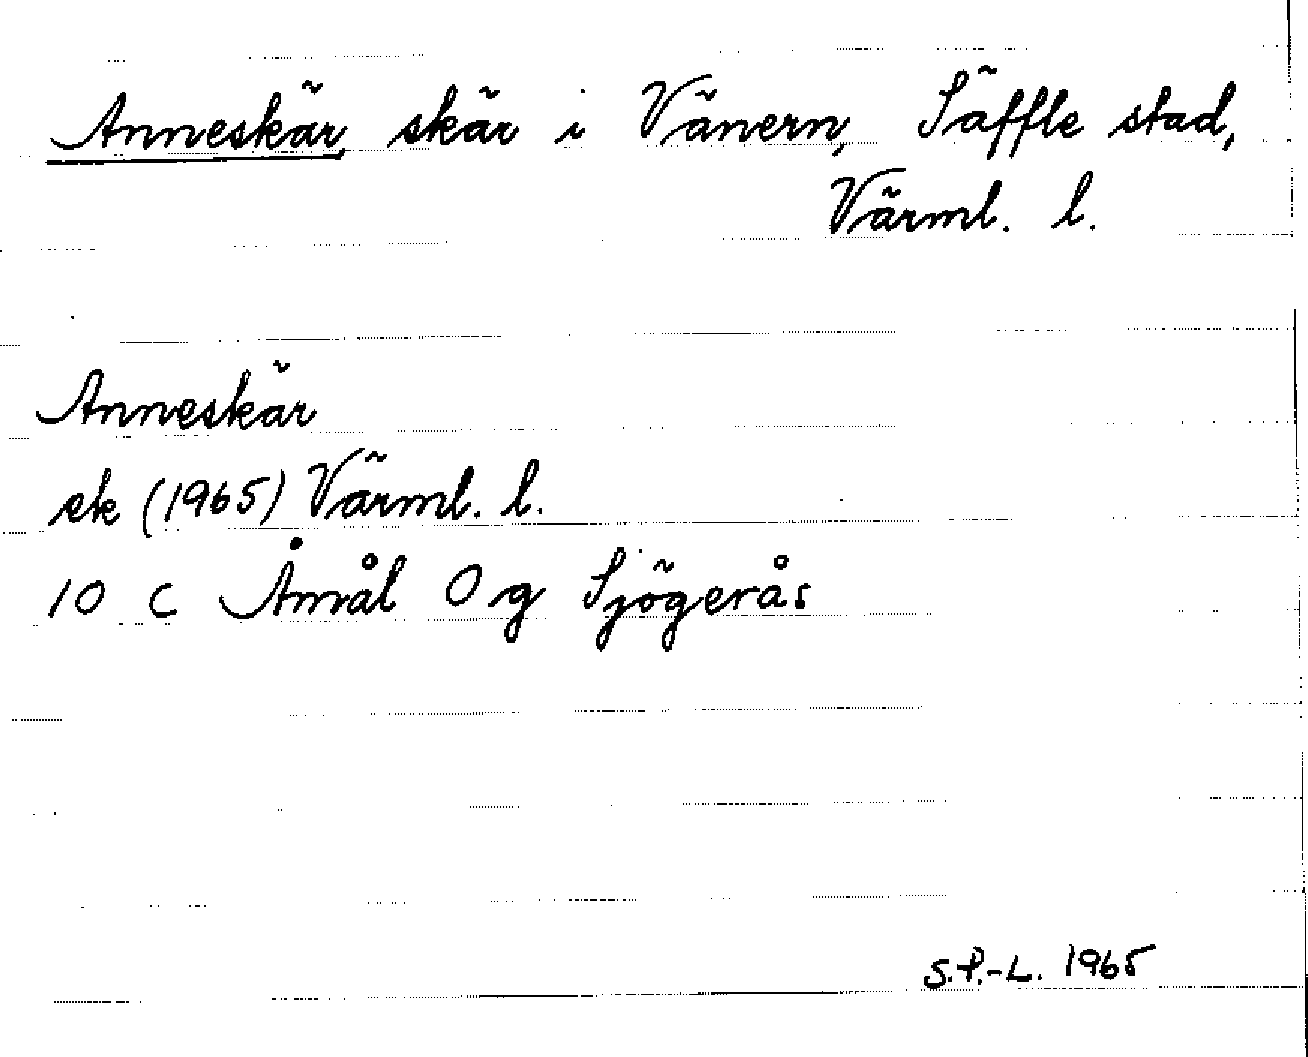 Anneskär, skär i Vänern, Säffle stad,
Värml. l.
Anneskär
ek (1965) Värml. l.
10 C Åmål Og Sjögerås
S.P.-L. 1965